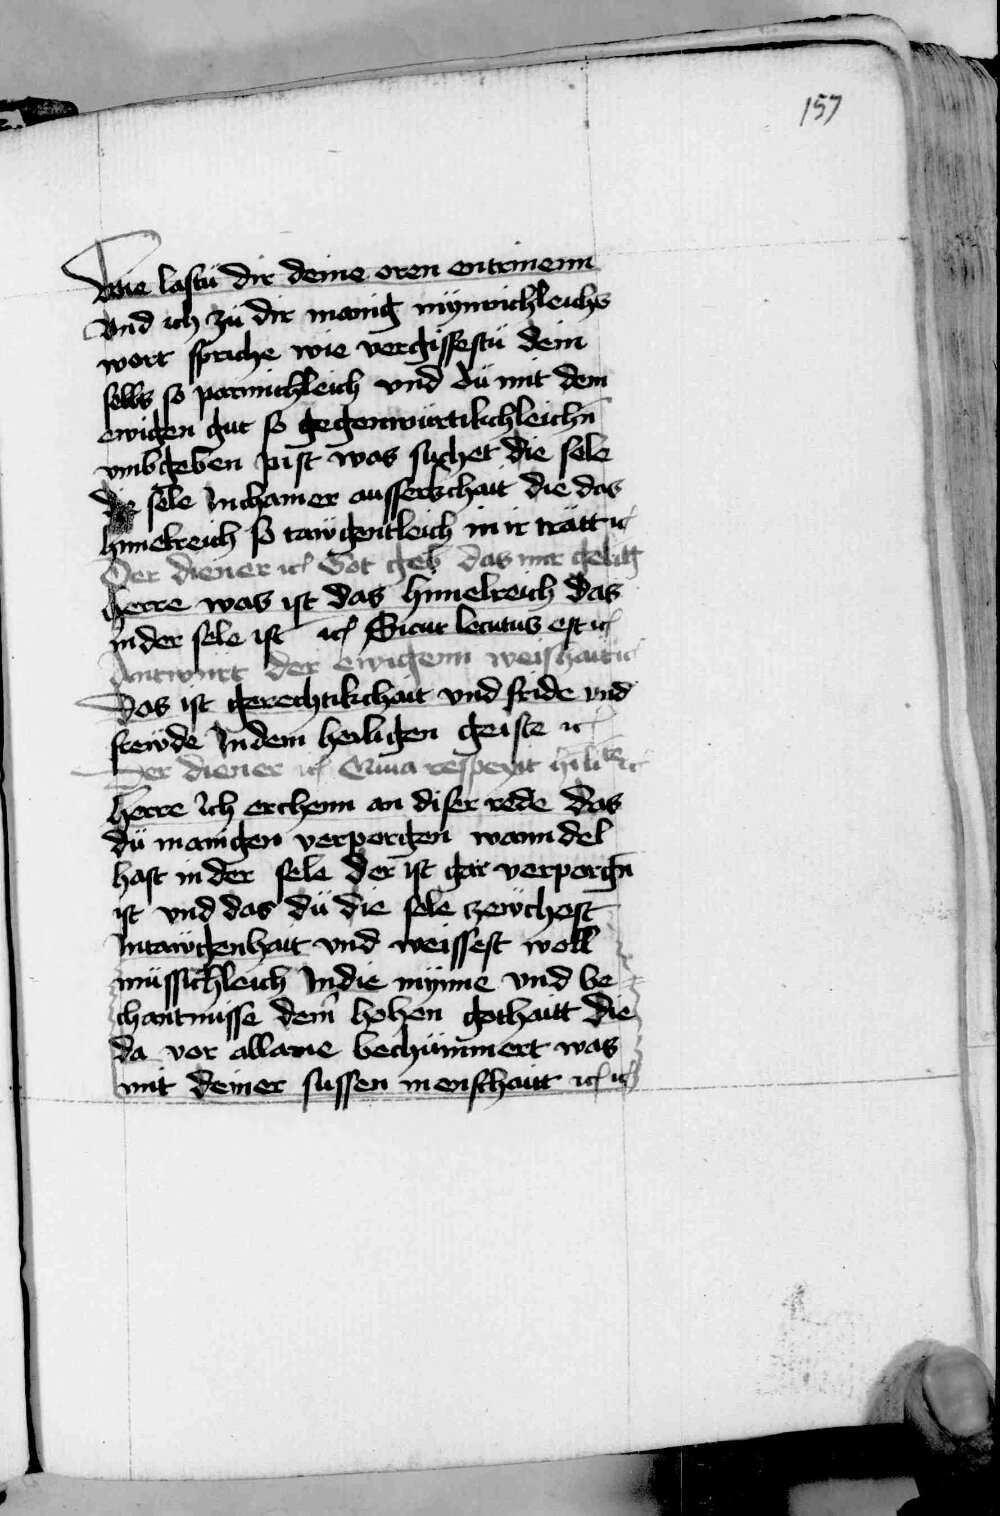 157
Wie lastu dir deine oren entrinenn
vnd ich zü dir manig mynnichleichs
wort spriche wie vergissestu dein
selbs so parmichleich vnd dü mit dem
ewigen gut so gegenwürtikchleichn̄
vmbgeben pist was suchet die sele
die sele Inchainer ausserkchait die das
himelreich so tawgentleich in ir trätt ꝛc
Der diener ꝛc Got geb das mir geling
herre was ist das himelreich das
in der sele ist ꝛc Sicut locutus est ꝛc
Antwurt der ewigenn weishait ꝛc
Das ist gerechtikchait vnd fride vnd
frewde Indem heiligen geiste ꝛc
Der diener ꝛc Quia respexit
herre Ich erchenn an diser rede das
dü manigen verporgen wanndel
hast in der sele der ist gar verporgn̄
ist vnd das dü die sele zewchest
Intawgenhait vnd weissest woll
müssichleich Indie mynne vnd be
chantnisse dem̄ hohen gothaitt die
da vor allaine bechümmert was
mit deiner sussen menschait ꝛc ꝛc